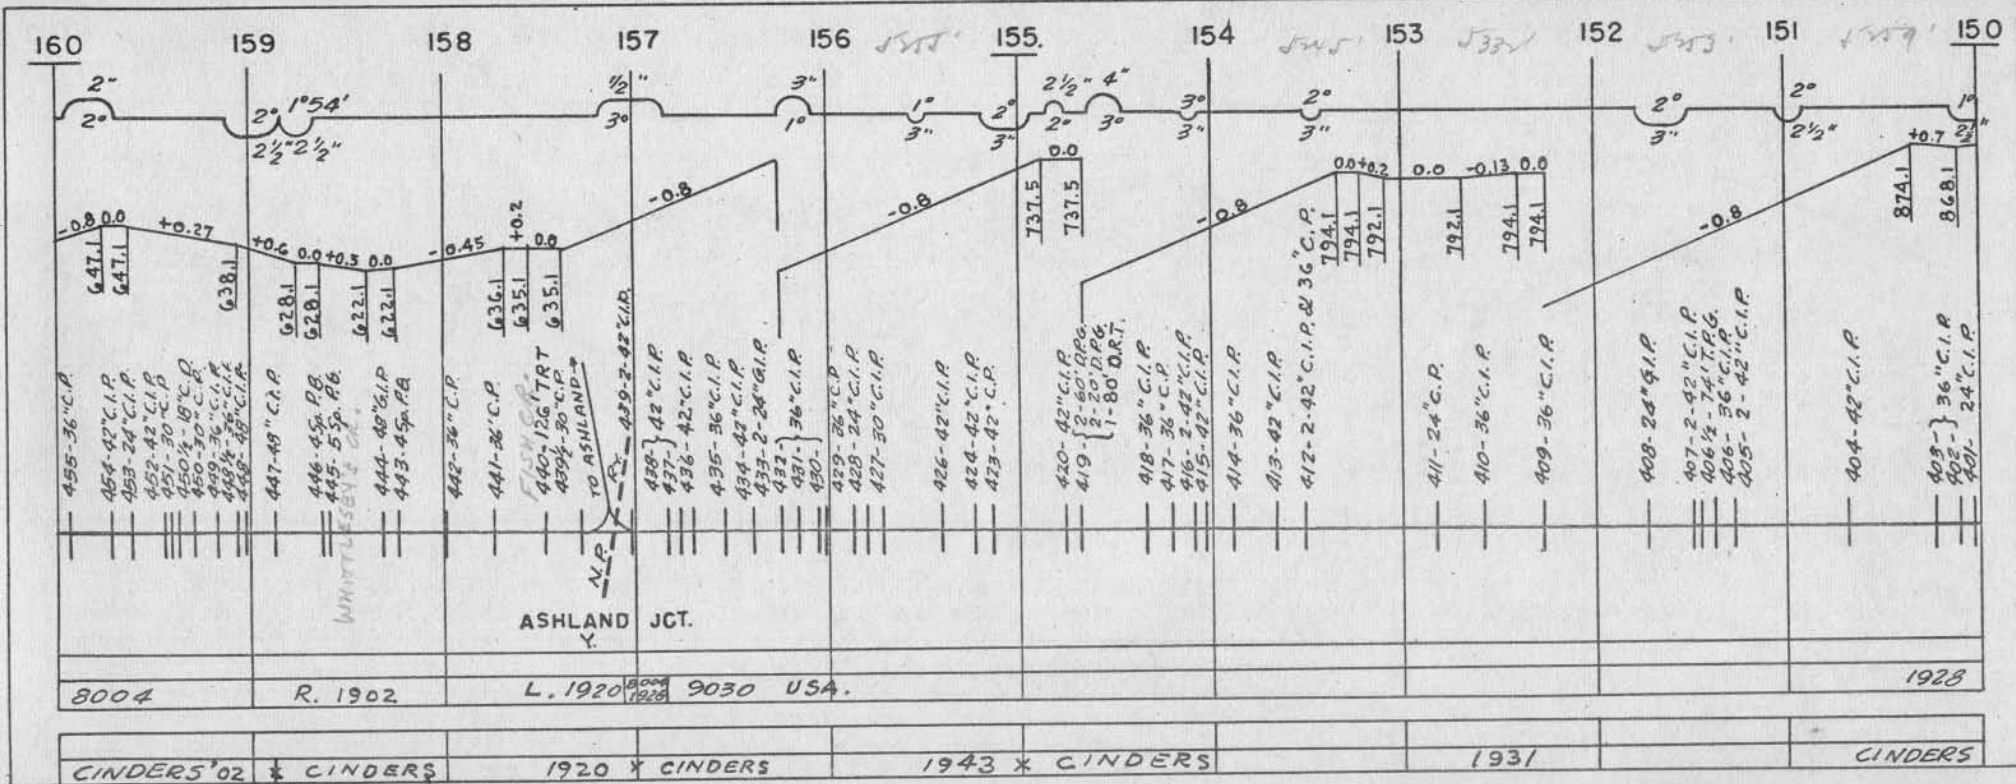 160 159 158 157 156 155. 154 153 152 151 150
2" 1°54' 1/2" 3" 1° 2° 2 1/2" 4" 3° 2° 2° 2° 1°
2° 2° 2 1/2" 2 1/2" 3° 1° 3" 3" 2° 3° 3" 3" 3" 2 1/2" 2 1/2"
-0.8 0.0 +0.27 +0.6 0.0 +0.5 0.0 -0.45 +0.2 0.0 -0.8 -0.8 0.0 -0.8 0.0 +0.2 0.0 -0.13 0.0 -0.8 +0.7
647.1 647.1 638.1 628.1 628.1 622.1 622.1 636.1 635.1 635.1 737.5 737.5 794.1 794.1 792.1 792.1 794.1 794.1 874.1 868.1
455-36"C.P.
454-42"C.I.P.
453-24"C.I.P.
452-42"C.I.P.
451-30"C.P.
450½-18"C.P.
450-30"C.P.
449-36"C.I.P.
448½-36"C.I.P.
448-48"C.I.P.
447-48"C.I.P.
446-4Sp. P.B.
445-5Sp. P.B.
WHITTLESEY CR.
444-48"G.I.P.
443-4Sp. P.B.
442-36"C.P.
441-36"C.P.
FISH CR.
440-126' TRT
439½-30"C.P.
TO ASHLAND
N.P. Ry.
439-2-42"C.I.P.
438-} 42"C.I.P.
437-}
436-42"C.I.P.
435-36"C.I.P.
434-42"C.I.P.
433-2-24"G.I.P.
432-} 36"C.I.P.
431-}
430-
429-36"C.P.
428-24"C.I.P.
427-30"C.I.P.
426-42"C.I.P.
424-42"C.I.P.
423-42"C.P.
420-42"C.I.P.
419-{2-60' D.P.G.
2-20' D.P.G.
1-80' D.R.T.
418-36"C.I.P.
417-36"C.P.
416-2-42"C.I.P.
415-42"C.I.P.
414-36"C.I.P.
413-42"C.I.P.
412-2-42"C.I.P. & 36"C.P.
411-24"C.P.
410-36"C.I.P.
409-36"C.I.P.
408-24"G.I.P.
407-2-42"C.I.P.
406½-74' T.P.G.
406-36"C.I.P.
405-2-42"C.I.P.
404-42"C.I.P.
403-} 36"C.I.P.
402-}
401- 24"C.I.P.
ASHLAND JCT.
Y.
8004 R. 1902 L. 1920 8004 1928 9030 USA. 1928
CINDERS '02 x CINDERS 1920 x CINDERS 1943 x CINDERS 1931 CINDERS